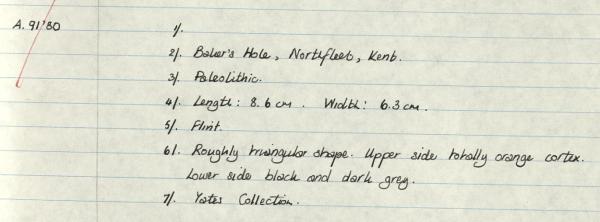 A. 91'80 1/.
2/. Baker's Hole, Northfleet, Kent.
3/. Paleolithic.
4/. Length: 8.6 cm. Width: 6.3 cm.
5/. Flint.
6/. Roughly triangular shape. Upper side totally orange cortex.
Lower side black and dark grey.
7/. Yates Collection.